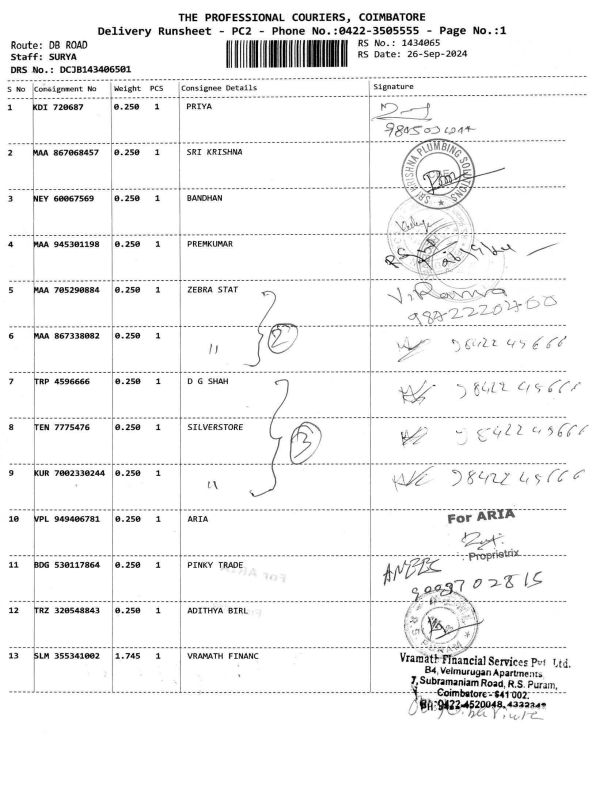 THE PROFESSIONAL COURIERS, COIMBATORE
Delivery Runsheet - PC2 - Phone No.:0422-3505555 - Page No.:1
Route: DB ROAD
RS No.: 1434065
Staff: SURYA
RS Date: 26-Sep-2024
DRS No.: DCJB143406501
S No Consignment No Weight PCS Consignee Details Signature
1 KDI 720687 0.250 1 PRIYA
2 MAA 867068457 0.250 1 SRI KRISHNA
SRI KRISHNA PLUMBING SOLUTIONS
3 NEY 60067569 0.250 1 BANDHAN
4 MAA 945301198 0.250 1 PREMKUMAR
5 MAA 705290884 0.250 1 ZEBRA STAT
2
6 MAA 867338082 0.250 1 11
7 TRP 4596666 0.250 1 D G SHAH
8 TEN 7775476 0.250 1 SILVERSTORE
3
9 KUR 7002330244 0.250 1 11
10 VPL 949406781 0.250 1 ARIA For ARIA
Proprietrix
11 BDG 530117864 0.250 1 PINKY TRADE
12 TRZ 320548843 0.250 1 ADITHYA BIRL
13 SLM 355341002 1.745 1 VRAMATH FINANC
Vramath Financial Services Pvt Ltd.
B4, Velmurugan Apartments
7, Subramaniam Road, R.S. Puram,
Coimbatore - 641 002.